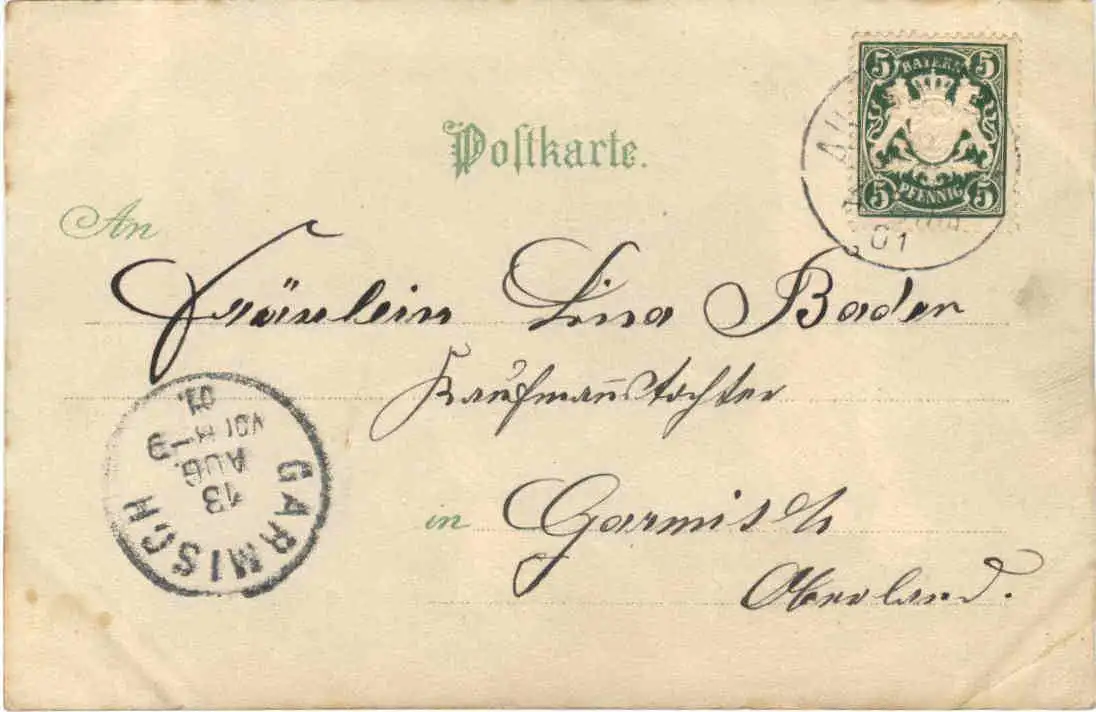 Postkarte.
5 BAYERN 5
5 PFENNIG 5
01
An
Fräulein Lina Bader
Kaufmanñstochter
in Garmisch
Oberland.
GARMISCH
13
AUG.
VOR 8-9
01.